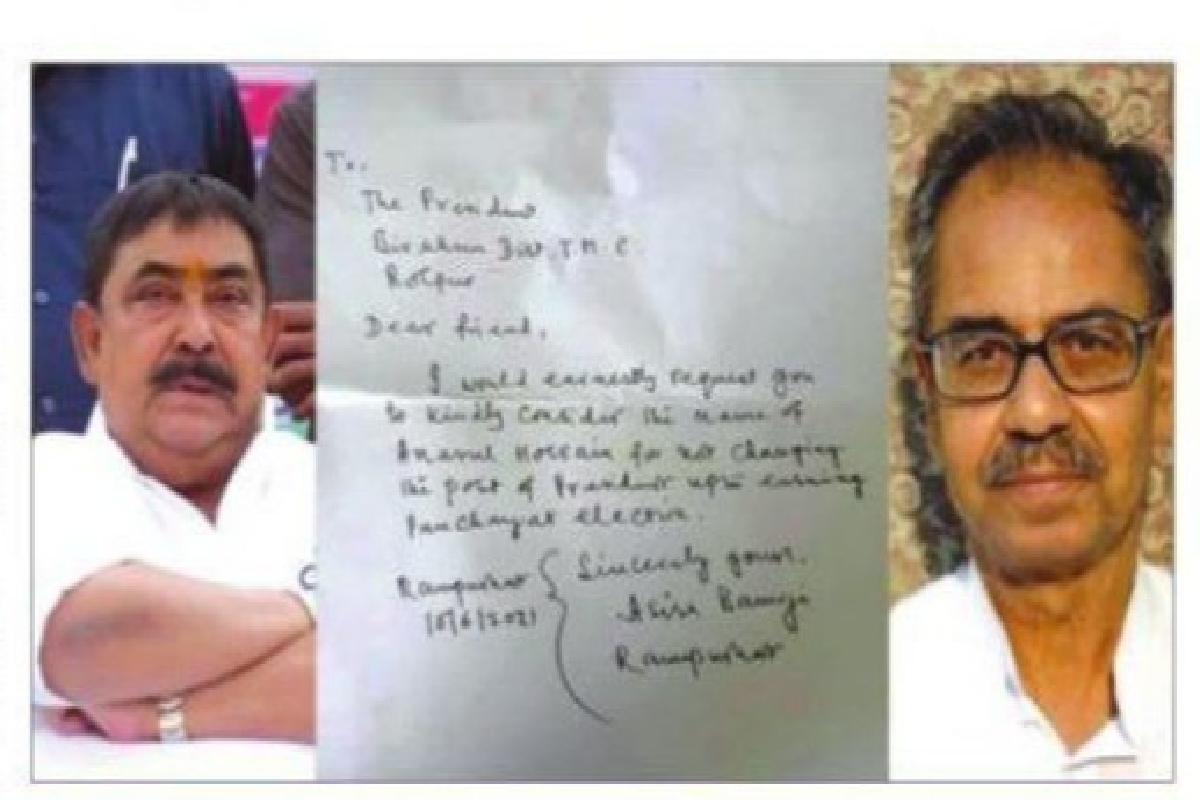 To,
The President
Birbhum Dist. T.M.C.
Bolpur
Dear friend,
I would earnestly request you
to kindly consider the name of
Anarul Hossain for not changing
the post of President upto ensuing
Panchayat election.
Rampurhat Sincerely yours.
10/6/2021 Asis Banerji
Rampurhat